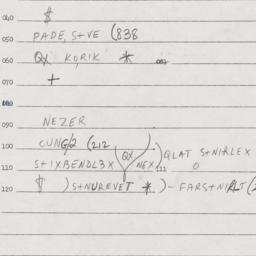 040 $
050 PADE, S+VE (838
060 QX KORIK *
070 +
080
090 NEZER
100 CUNG/2 (212 QX ) QLAT S+NIRLEX
110 S+IXBENDL3X NEX 111 O
120 $ )S+NUREVET * )- FARS+NIRLT (2